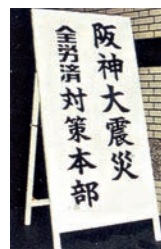 阪神大震災
全労済対策本部